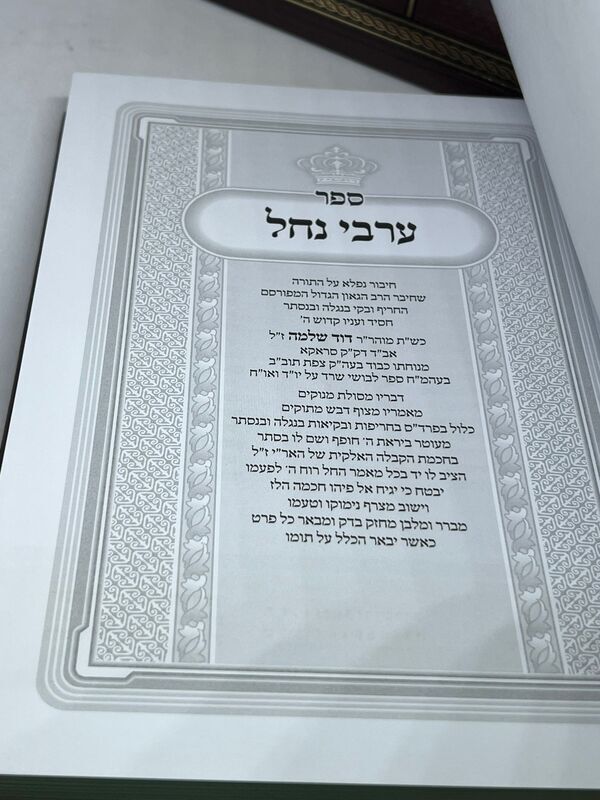 ספר
ערבי נחל
חיבור נפלא על התורה
שחיבר הרב הגאון הגדול המפורסם
החריף ובקי בנגלה ובנסתר
חסיד ועניו קדוש ה'
כש"ת מוהר"ר דוד שלמה ז"ל
אב"ד דק"ק סראקא
מנוחתו כבוד בעה"ק צפת תוב"ב
בעהמ"ח ספר לבושי שרד על יו"ד ואו"ח
דבריו מסולת מנוקים
מאמריו מצוף דבש מתוקים
כלול בפרד"ס בחריפות ובקיאות בנגלה ובנסתר
מעוטר ביראת ה' חופף ושם לו בסתר
בחכמת הקבלה האלקית של האר"י ז"ל
הציב לו יד בכל מאמר החל רוח ה' לפעמו
יבטח כי יגיח אל פיהו חכמה הלז
וישוב מצרף נימוקו וטעמו
מברר ומלבן מחזק בדק ומבאר כל פרט
כאשר יבאר הכלל על תומו